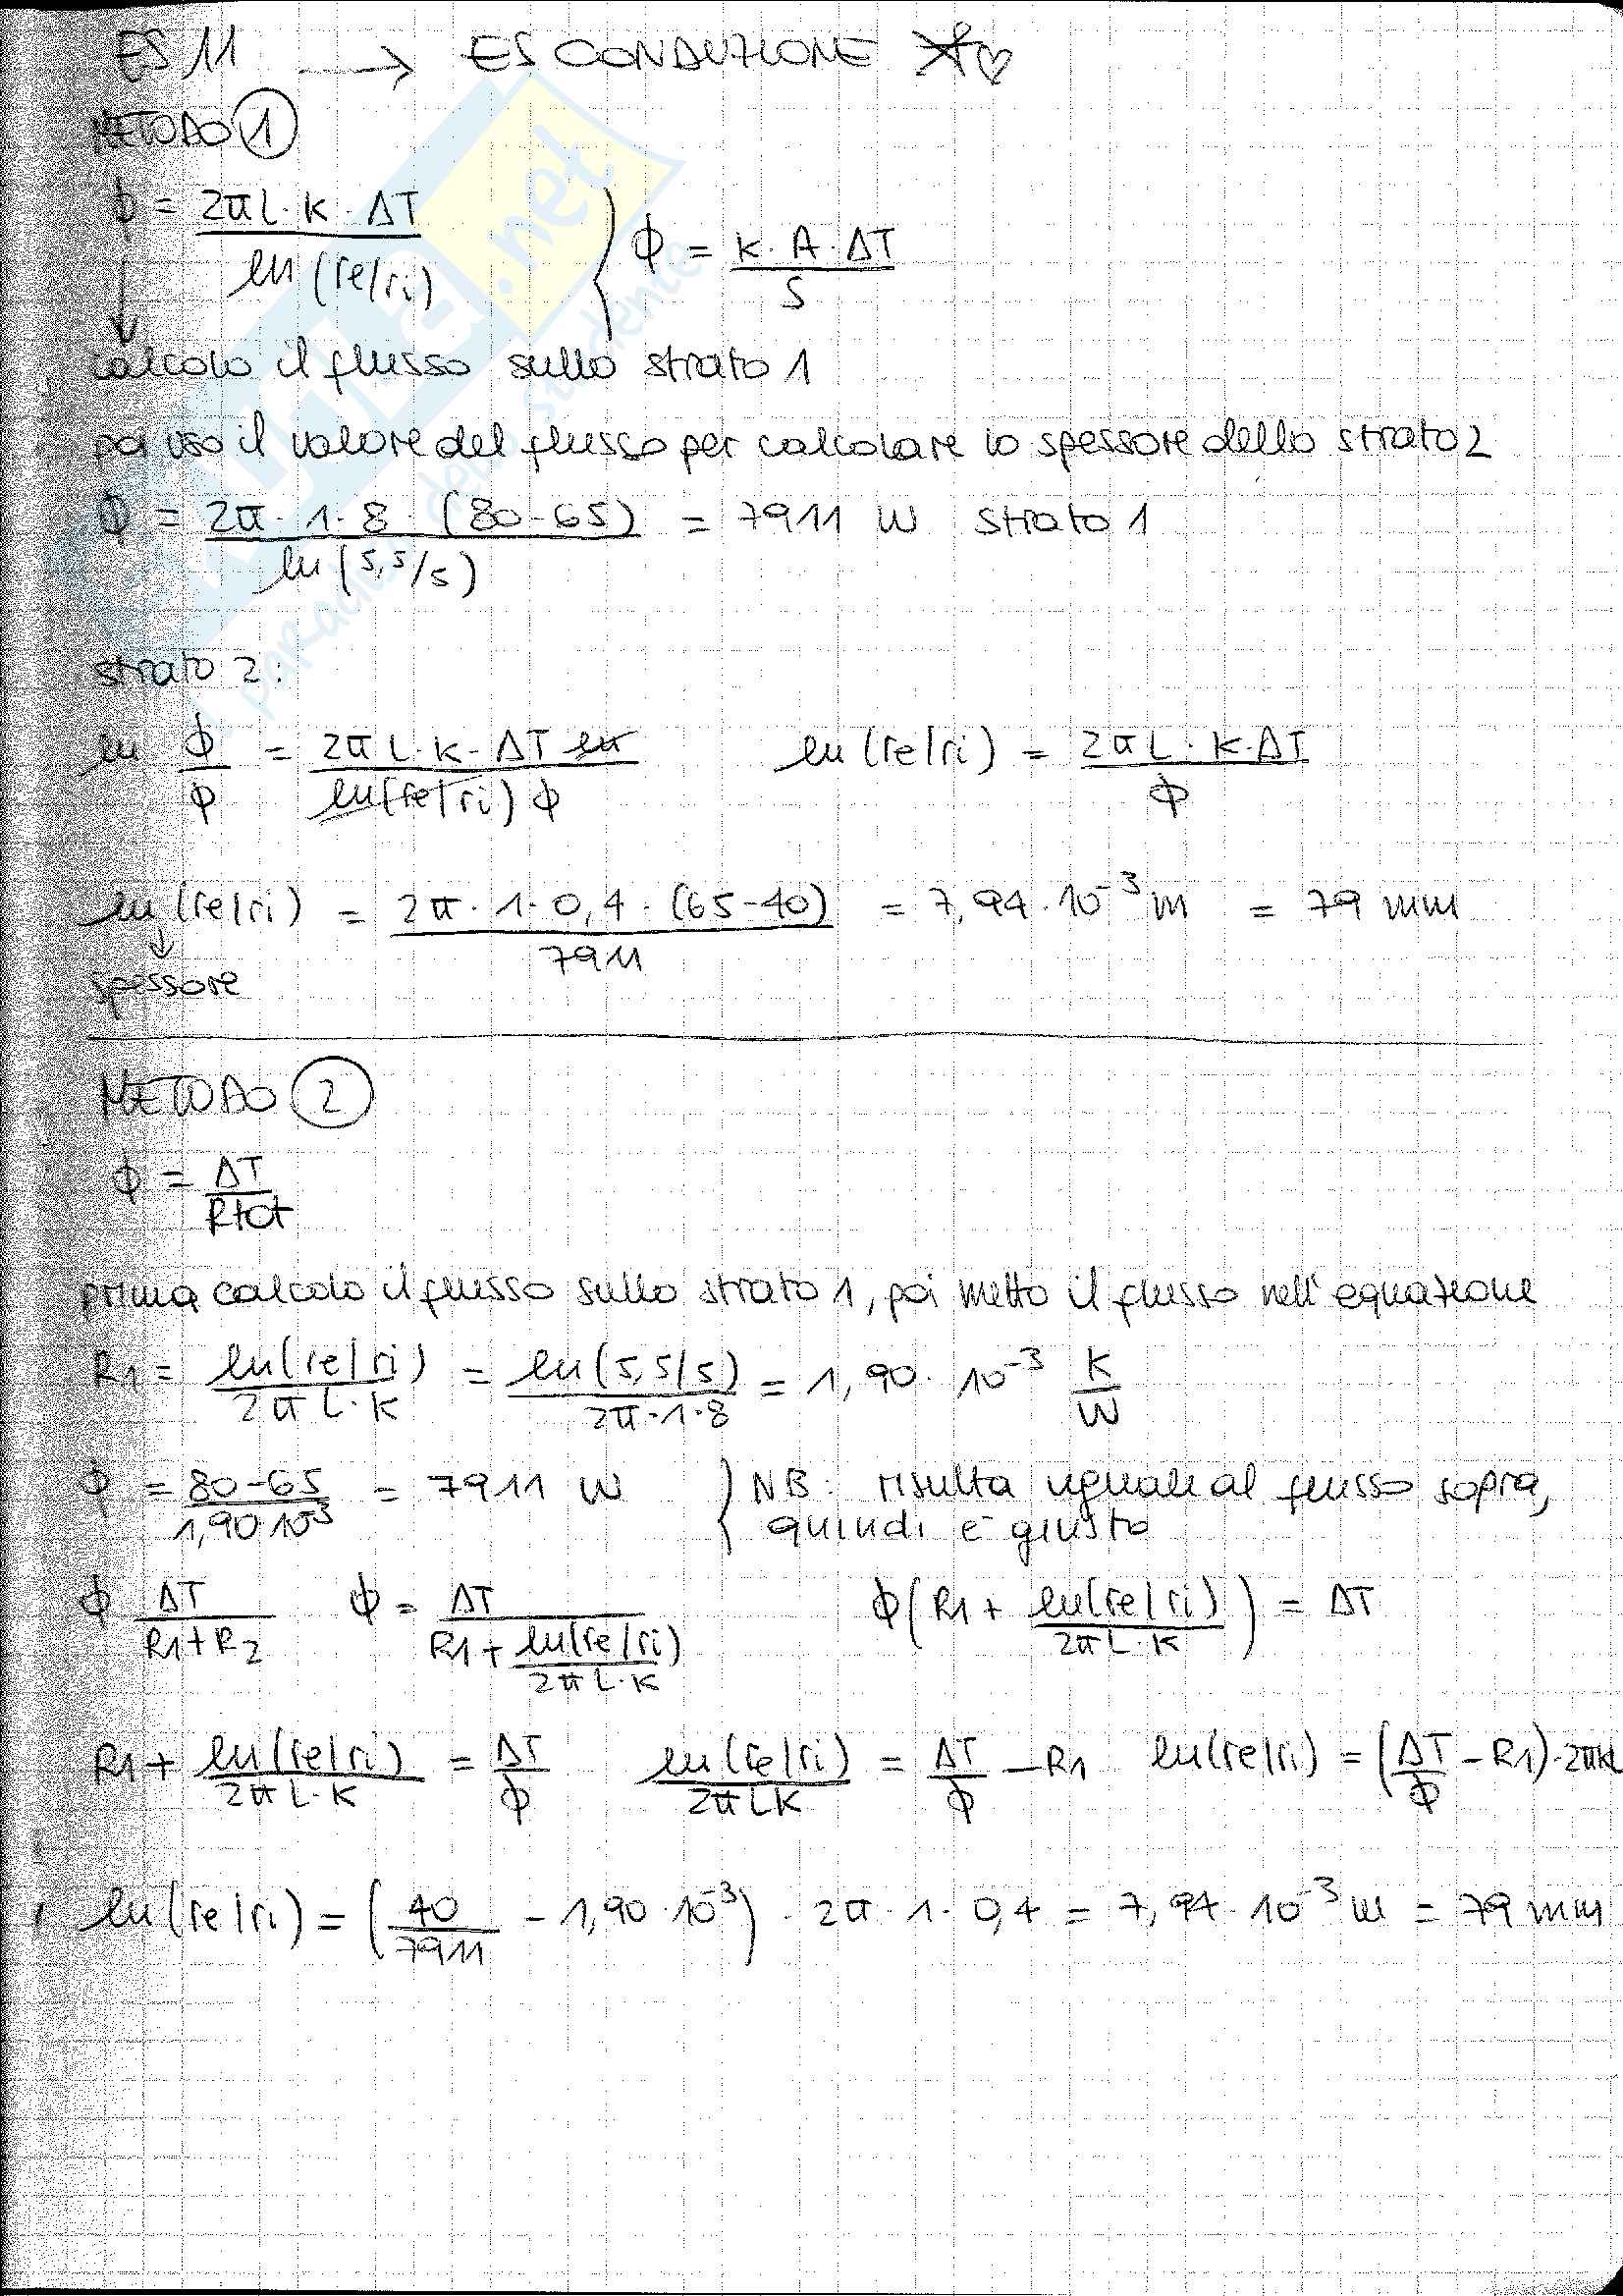 ES 11 → ES CONDUZIONE
METODO 1
ϕ = 2πL·K·ΔT / ln(re/ri) } ϕ = K·A·ΔT / S
calcolo il flusso sullo strato 1
poi uso il valore del flusso per calcolare lo spessore dello strato 2
ϕ = 2π·1·8·(80-65) / ln(5,5/5) = 7911 W strato 1
strato 2:
ln ϕ/ϕ = 2πL·K·ΔT ln / ln(re/ri) ϕ ln(re/ri) = 2πL·K·ΔT / ϕ
ln(re/ri) = 2π·1·0,4·(65-40) / 7911 = 7,94·10⁻³ m = 79 mm
↓
spessore
METODO 2
ϕ = ΔT / Rtot
prima calcolo il flusso sullo strato 1, poi metto il flusso nell'equazione
R1 = ln(re/ri) / 2πL·K = ln(5,5/5) / 2π·1·8 = 1,90·10⁻³ K/W
ϕ = 80-65 / 1,90·10⁻³ = 7911 W } NB: risulta uguale al flusso sopra,
quindi è giusto
ϕ ΔT / R1+R2 ϕ = ΔT / R1 + ln(re/ri) / 2πL·K ϕ(R1 + ln(re/ri) / 2πL·K) = ΔT
R1 + ln(re/ri) / 2πL·K = ΔT / ϕ ln(re/ri) / 2πLK = ΔT / ϕ - R1 ln(re/ri) = (ΔT / ϕ - R1)·2π
ln(re/ri) = (40 / 7911 - 1,90·10⁻³)·2π·1·0,4 = 7,94·10⁻³ m = 79 mm
.net